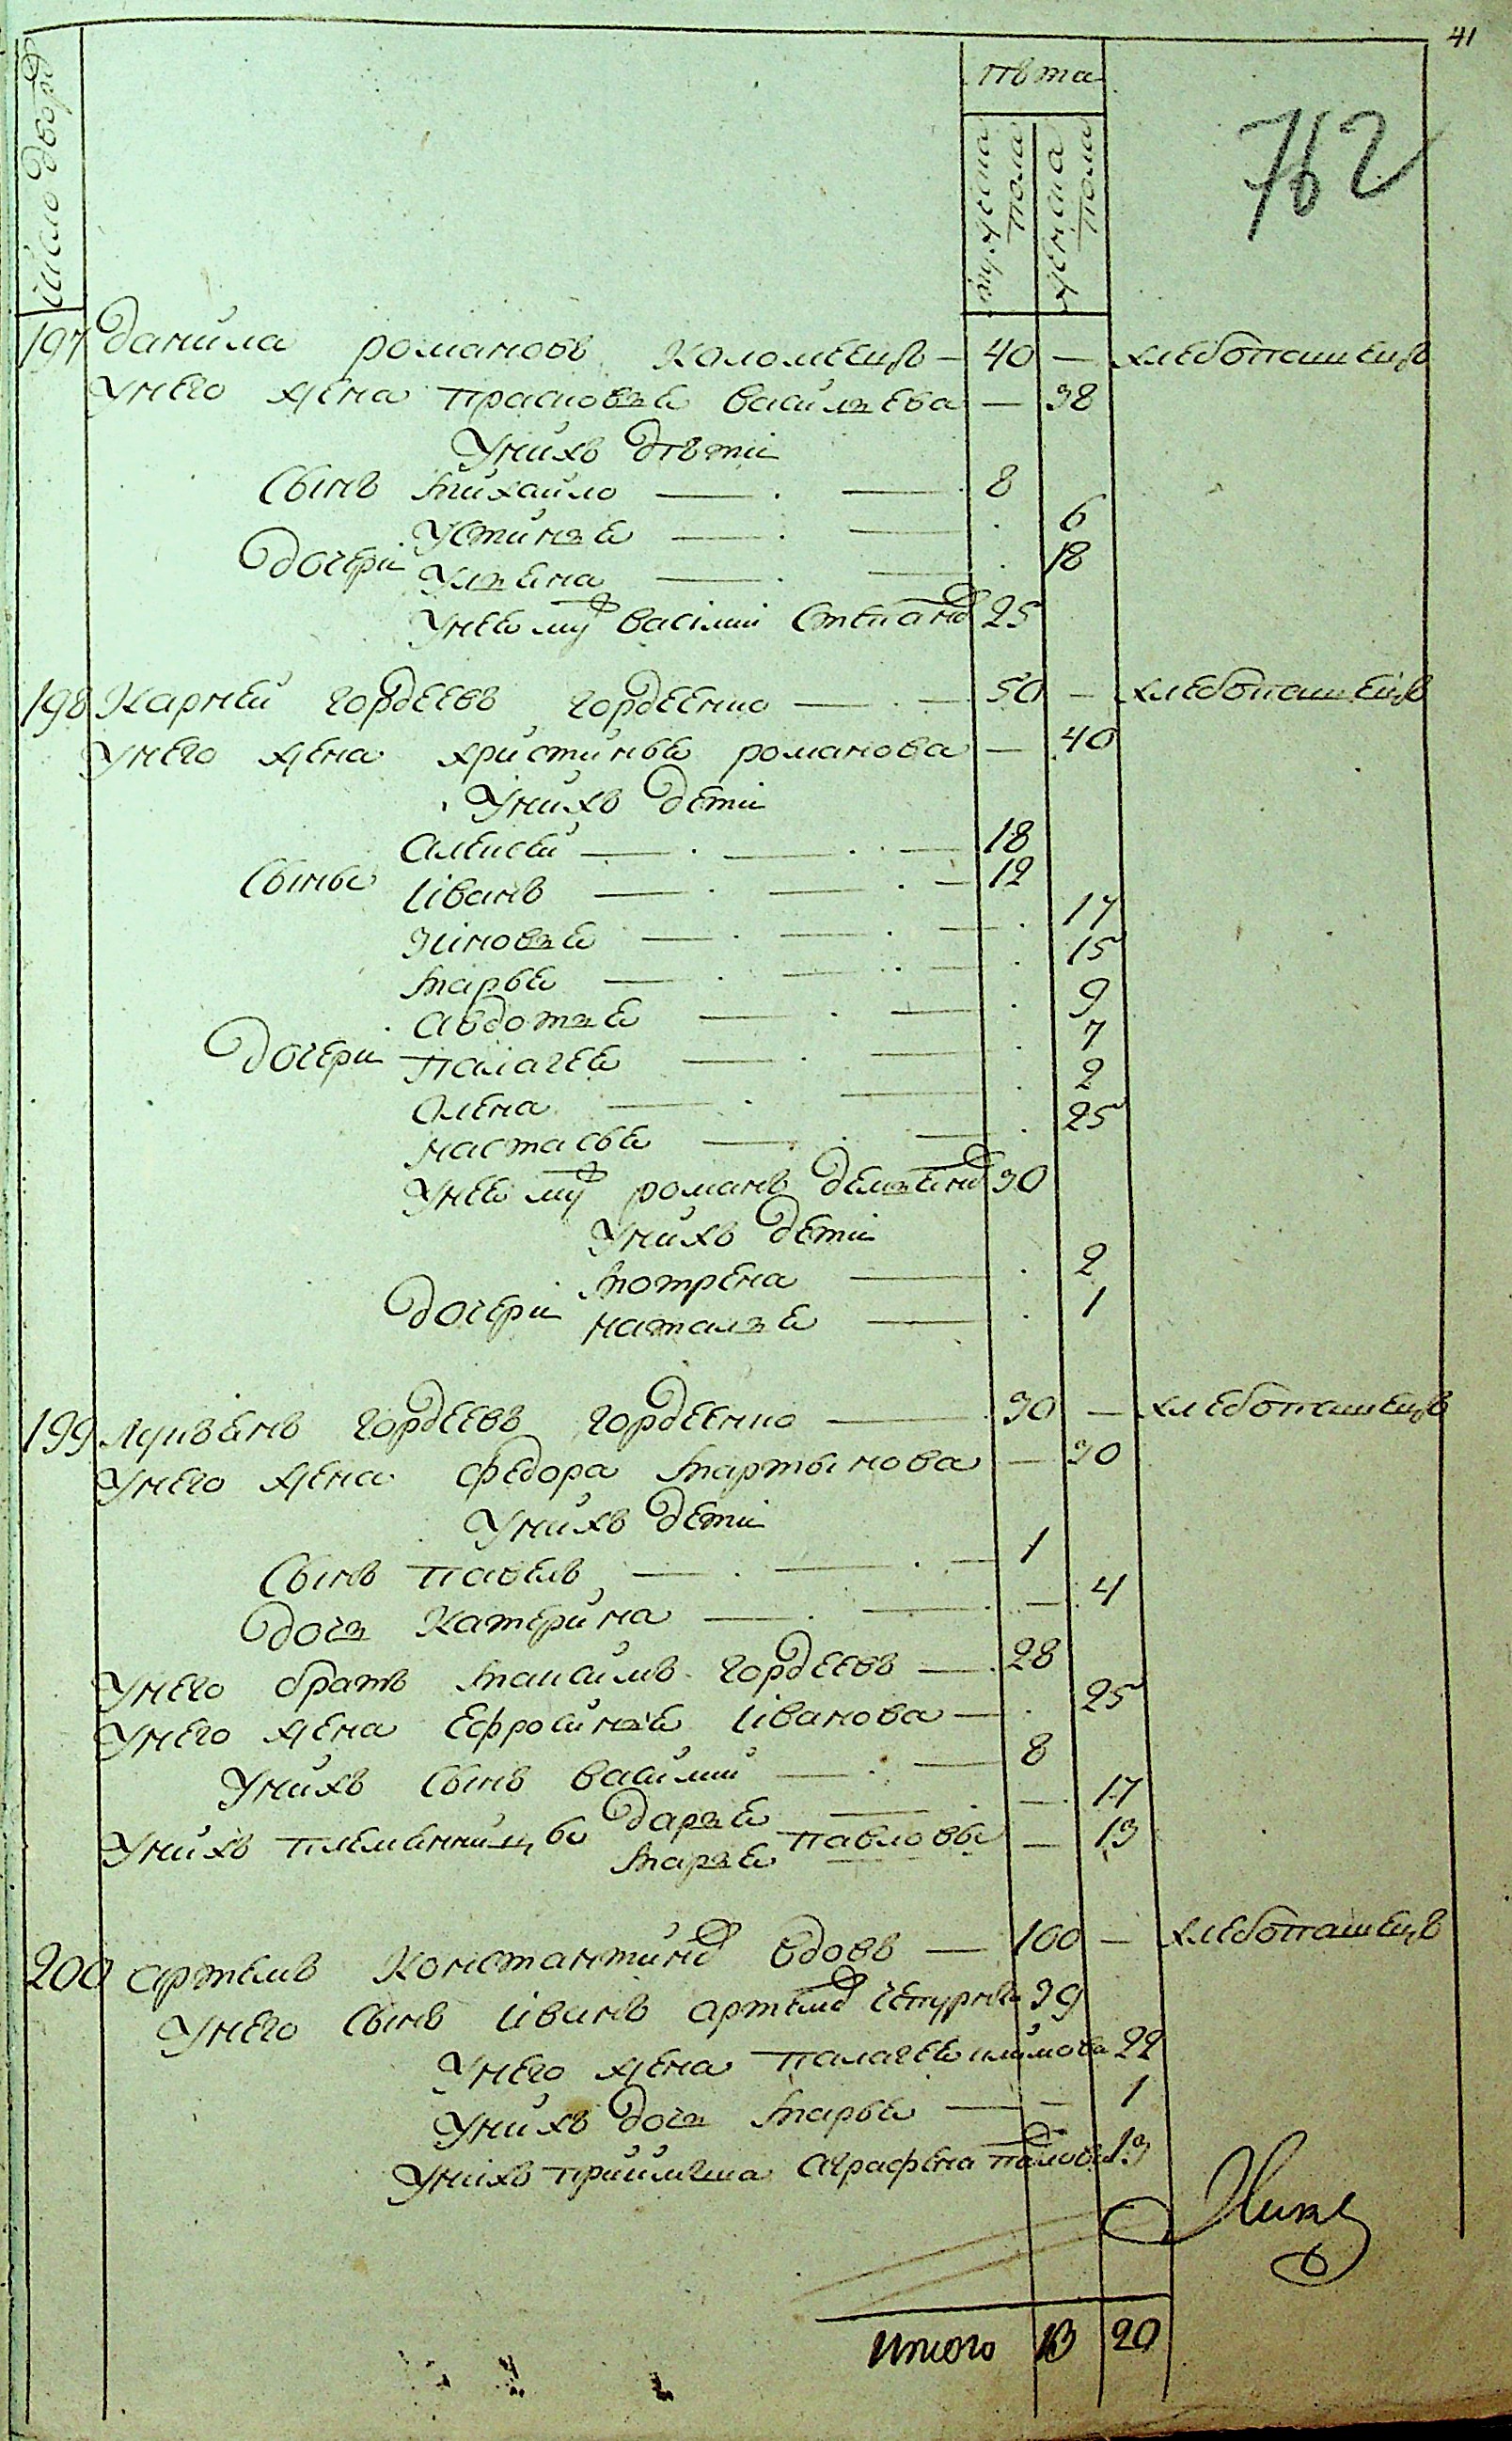 41
762
Число двора
лѣта
мужеска пола
женска пола
197 Данила романовъ Коломеецъ — 40 — хлебопашецъ
Унего жена прасковья васильева — 38
Унихъ дѣти
Сынъ михайло — 8
Дочери Устинья — 6
Ульяна — 18
Унея муж василий Степанов 25
198 Карней гордеевъ гордеенко — 50 — хлебопашецъ
Унего жена христинья романова — 40
Унихъ дети
Сыны алексей — 18
иванъ — 12
Зіновья — 17
марья — 15
Дочери авдотья — 9
палагея — 7
олена — 2
настасья — 25
Унея муж романъ Дем 30
Унихъ дети
Дочери мотрена — 2
наталья — 1
199 Лукьянъ гордеевъ гордеенко — 30 — хлебопашецъ
Унего жена федора мартынова — 30
Унихъ дети
Сынъ павелъ — 1
Дочь Катерина — 4
Унего братъ максимъ гордеевъ — 28
Унего жена ефросинья иванова — 25
Унихъ сынъ василий — 8
Унихъ племянницы Дарья — 17
марья павловы — 13
200 артемъ Константинов вдовъ — 100 — хлебопашецъ
Унего сынъ иванъ артемов чепурной 39
Унего жена палагея климова 22
Унихъ дочь марья — 1
Унихъ приимыша аграфена павлова 13
Итого 13 20